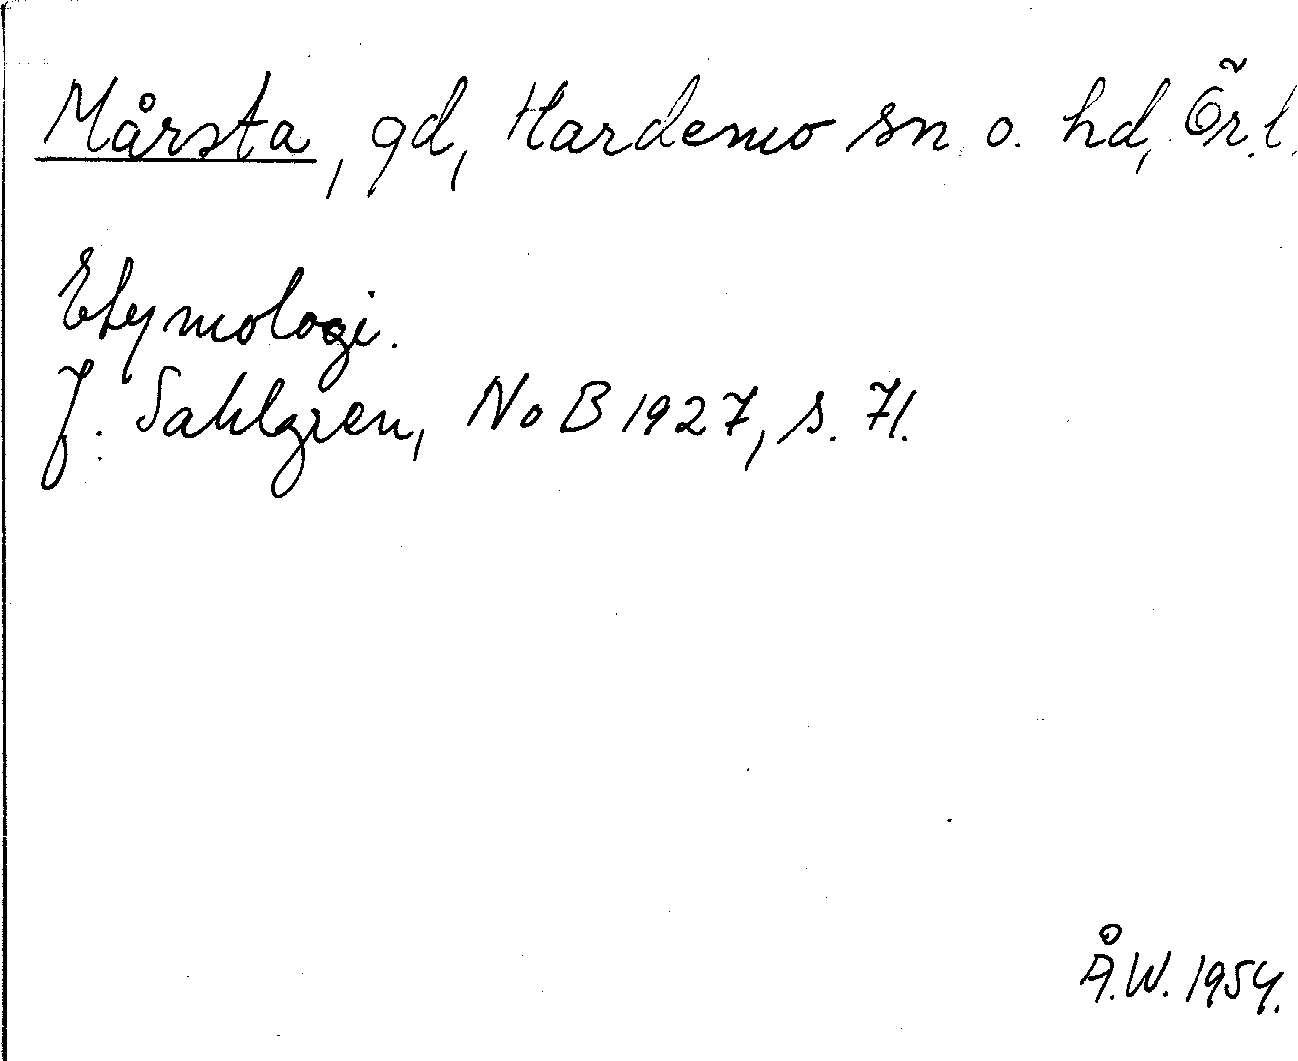 Mårsta, gd, Hardemo sn o. hd, Ör.l.
Etymologi.
J. Sahlgren, NoB 1927, s. 71.
Å.W. 1954.